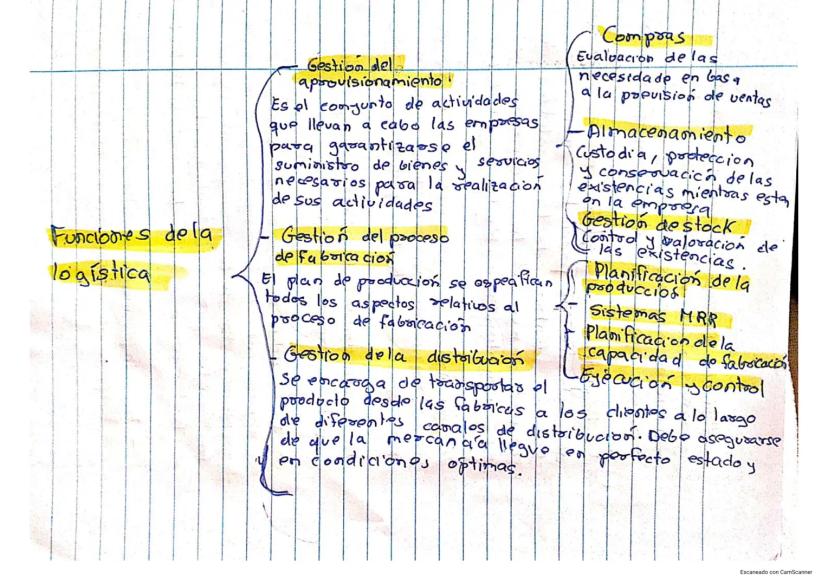 Funciones de la
logística
Gestión del
aprovisionamiento:
Es el conjunto de actividades
que llevan a cabo las empresas
para garantizarse el
suministro de bienes y servicios
necesarios para la realización
de sus actividades
Compras
Evaluación de las
necesidade en base
a la previsión de ventas
Almacenamiento
Custodia, protección
y conservación de las
existencias mientras esta
en la empresa
Gestión de stock
Control y valoración de
las existencias.
Gestión del proceso
de fabricación
El plan de producion se espeafican
todos los aspectos relativos al
proceso de fabricación
Planificación de la
producción
Sistemas MRR
Planificacion de la
capacidad de fabricación
Ejecución y control
Gestion de la distribución
Se encarga de transportar el
producto desde las fabricas a los clientes a lo largo
de diferentes canales de distribución. Debe asegurarse
de que la mercancía llegue en perfecto estado y
en condiciones optimas.
Escaneado con CamScanner